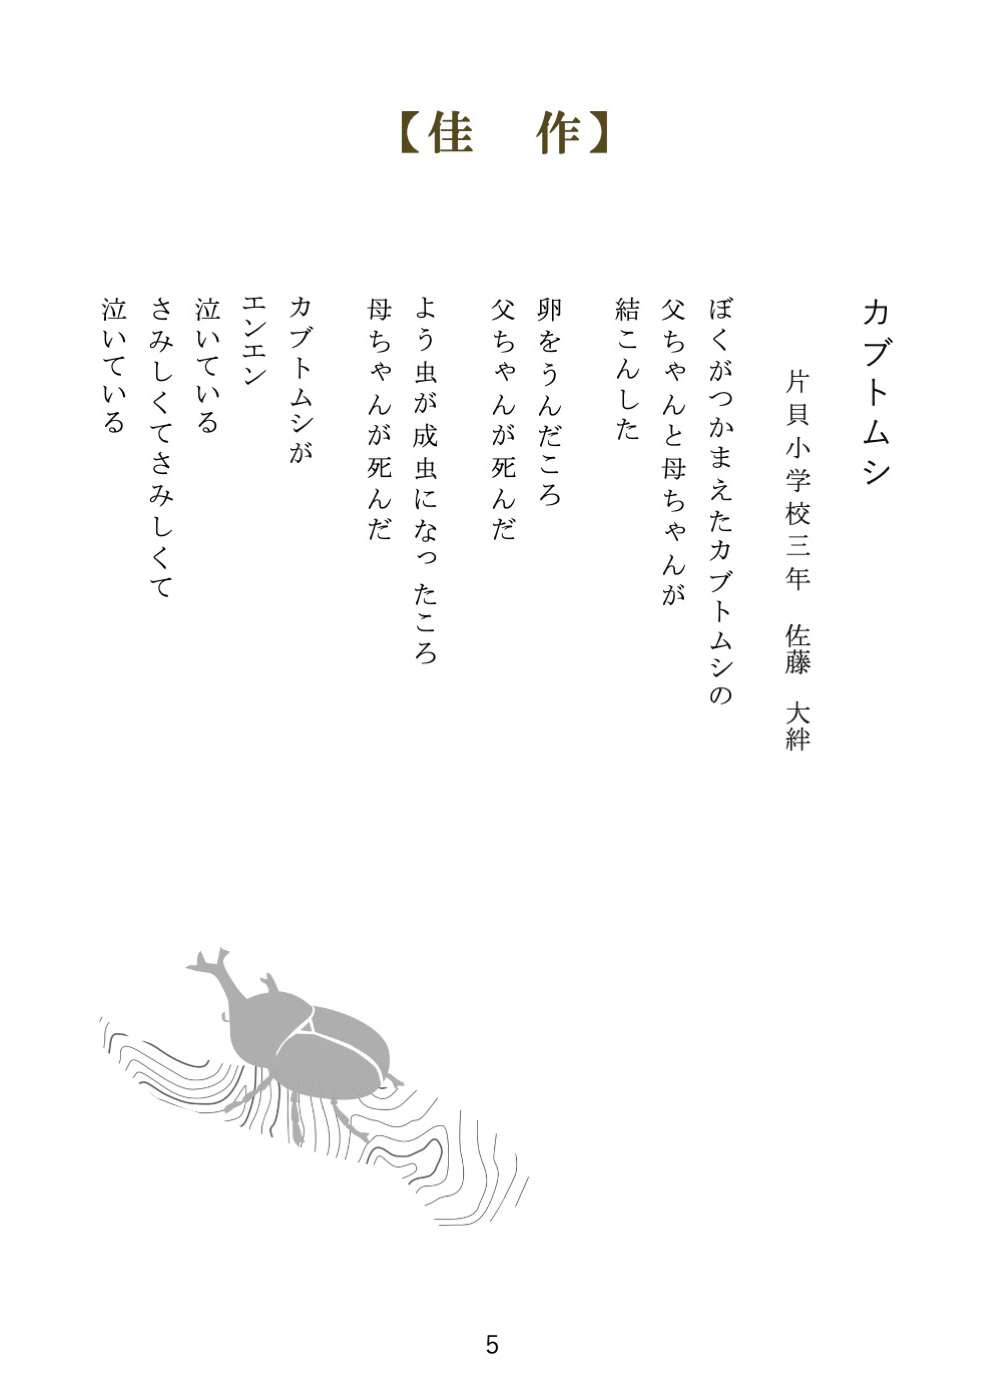 【佳　作】
カブトムシ
片貝小学校三年　佐藤　大絆
ぼくがつかまえたカブトムシの
父ちゃんと母ちゃんが
結こんした
卵をうんだころ
父ちゃんが死んだ
よう虫が成虫になったころ
母ちゃんが死んだ
カブトムシが
エンエン
泣いている
さみしくてさみしくて
泣いている
5